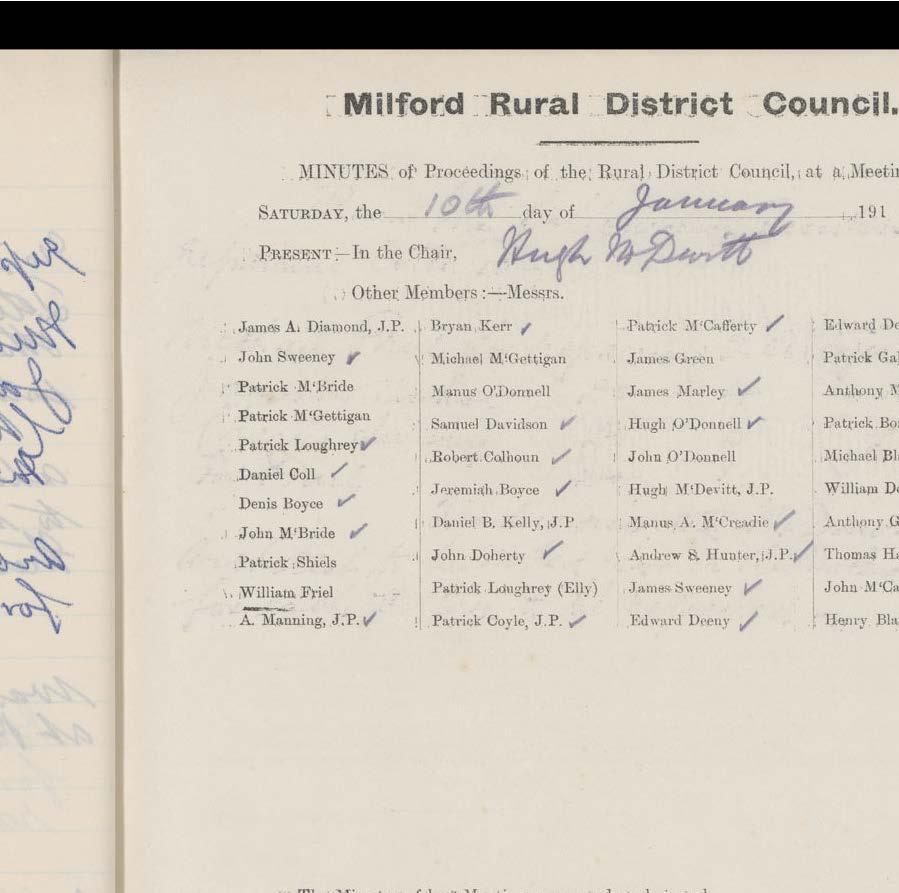 Milford Rural District Council.
MINUTES of Proceedings of the Rural District Council, at a Meetin
SATURDAY, the 10th day of January 191
PRESENT—In the Chair, Hugh McDevitt
Other Members:—Messrs.
James A. Diamond, J.P. Bryan Kerr ✓ Patrick M‘Cafferty ✓ Edward De
John Sweeney ✓ Michael M‘Gettigan James Green Patrick Ga
Patrick M‘Bride Manus O’Donnell James Marley ✓ Anthony M
Patrick M‘Gettigan Samuel Davidson ✓ Hugh O’Donnell ✓ Patrick Bo
Patrick Loughrey ✓ Robert Calhoun ✓ John O’Donnell Michael Bl
Daniel Coll ✓ Jeremiah Boyce ✓ Hugh M‘Devitt, J.P. William De
Denis Boyce ✓ Daniel B. Kelly, J.P. Manus A. M‘Creadie ✓ Anthony G
John M‘Bride ✓ John Doherty ✓ Andrew S. Hunter, J.P. ✓ Thomas Ha
Patrick Shiels Patrick Loughrey (Elly) James Sweeney ✓ John M‘Ca
William Friel Patrick Coyle, J.P. ✓ Edward Deeny ✓ Henry Bla
A. Manning, J.P. ✓